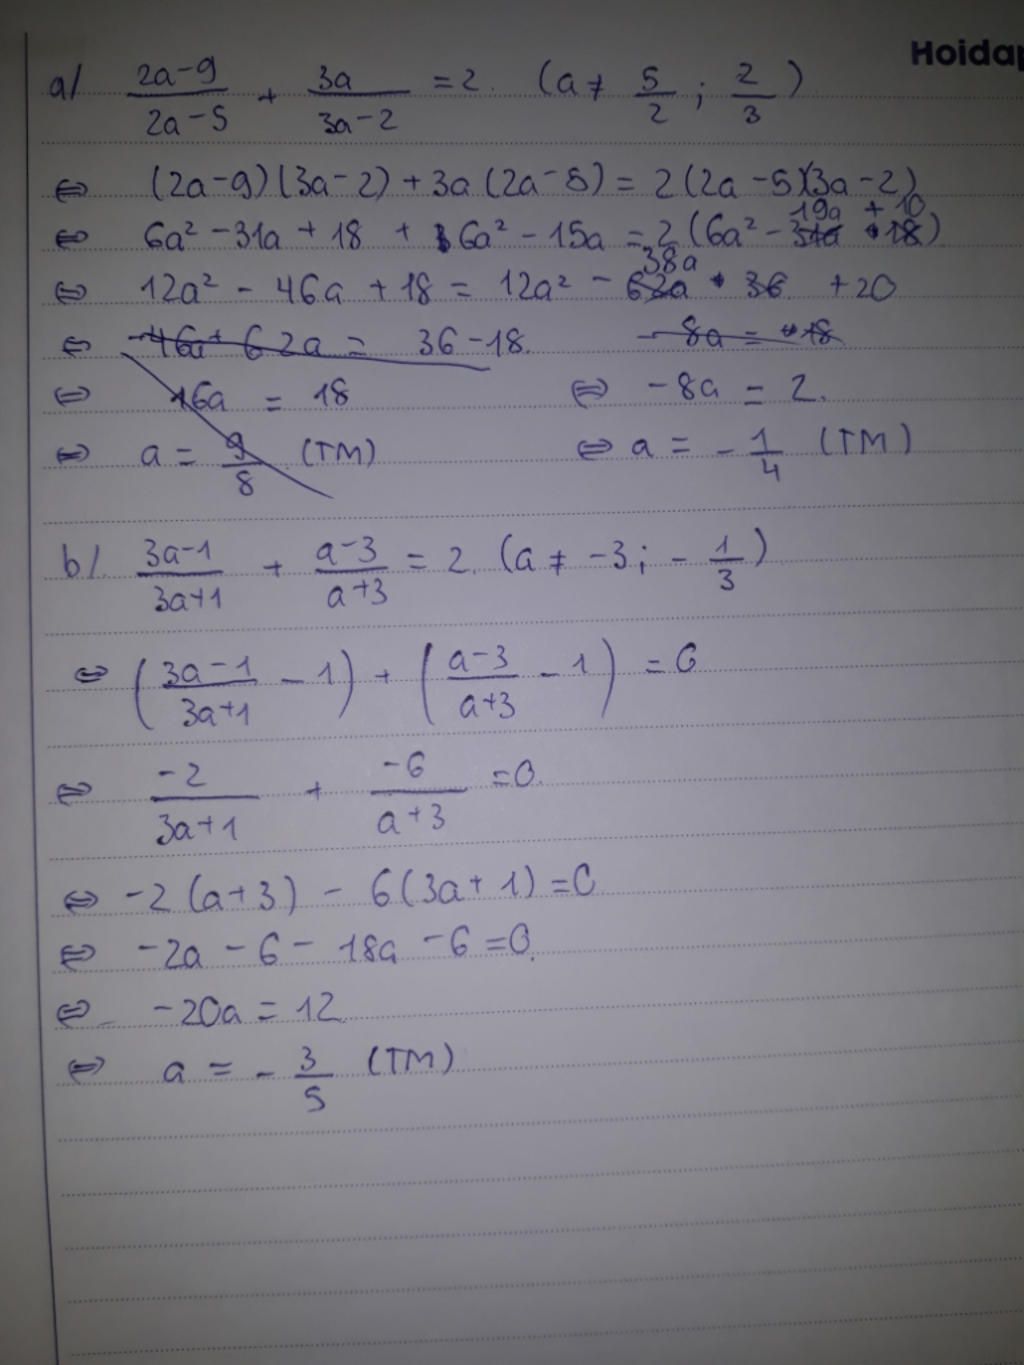 Hoidap
a/ (2a-9)/(2a-5) + 3a/(3a-2) = 2. (a ≠ 5/2 ; 2/3)
⇔ (2a-9)(3a-2) + 3a(2a-5) = 2(2a-5)(3a-2)
⇔ 6a² - 31a + 18 + 6a² - 15a = 2(6a² - 19a + 10)
⇔ 12a² - 46a + 18 = 12a² - 38a + 20
⇔ -46a + 62a = 36 - 18. -8a = 18
⇔ 16a = 18 ⇔ -8a = 2.
⇔ a = 9/8 (TM) ⇔ a = -1/4 (TM)
b/. (3a-1)/(3a+1) + (a-3)/(a+3) = 2. (a ≠ -3; -1/3)
⇔ ((3a-1)/(3a+1) - 1) + ((a-3)/(a+3) - 1) = 0
⇔ -2/(3a+1) + -6/(a+3) = 0.
⇔ -2(a+3) - 6(3a+1) = 0
⇔ -2a - 6 - 18a - 6 = 0.
⇔ -20a = 12.
⇔ a = -3/5 (TM)